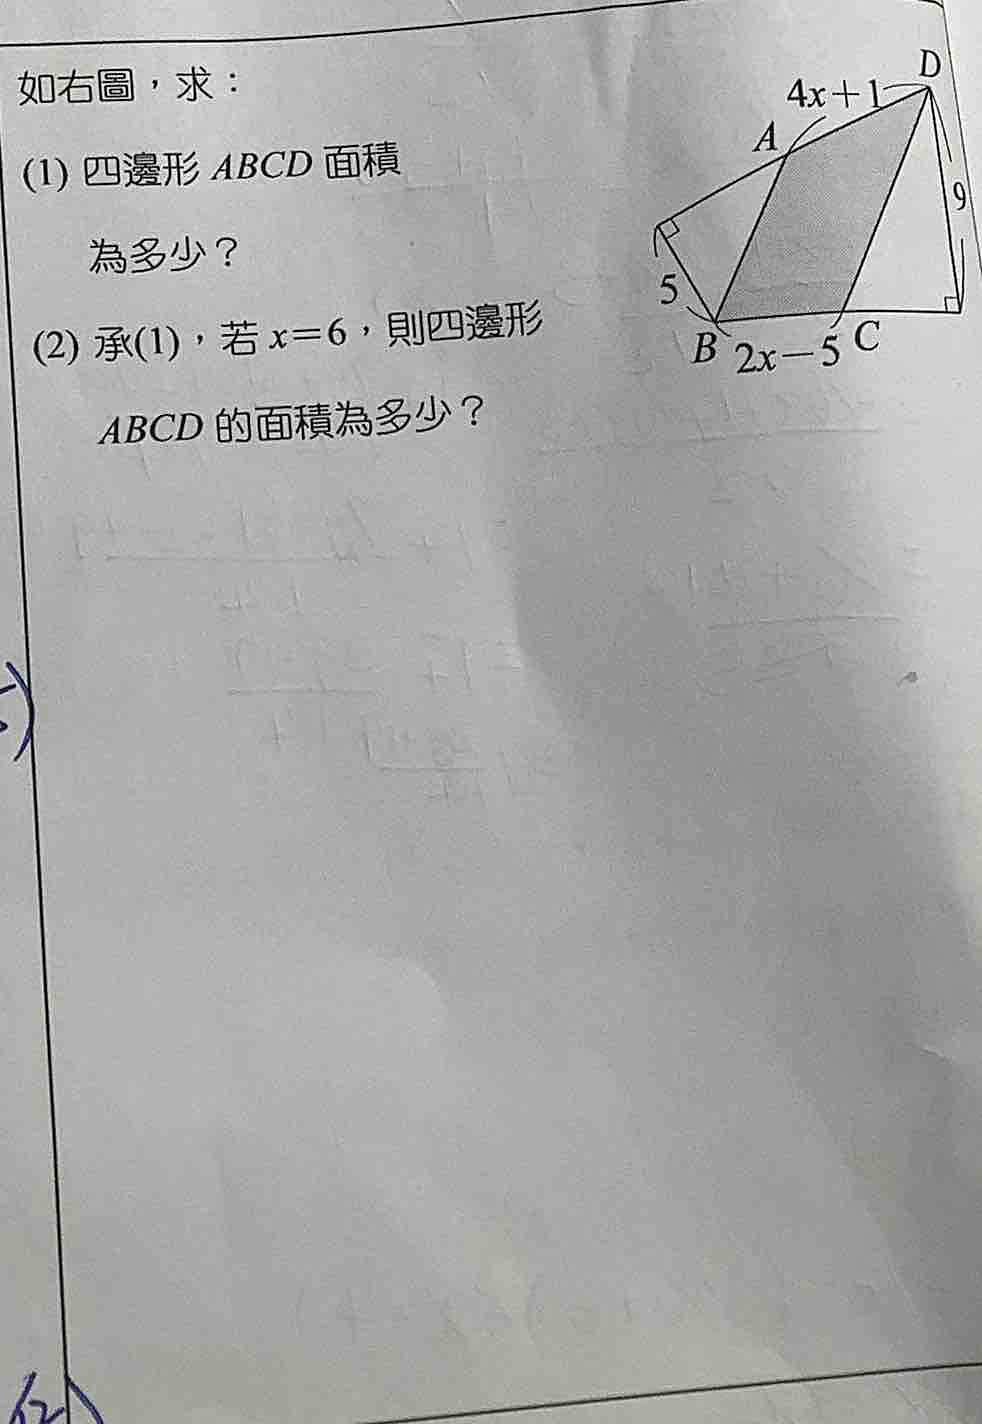 如右圖，求：
(1) 四邊形 ABCD 面積
為多少？
(2) 承(1)，若 x＝6，則四邊形
ABCD 的面積為多少？
D
4x＋1
A
9
5
B
2x－5
C